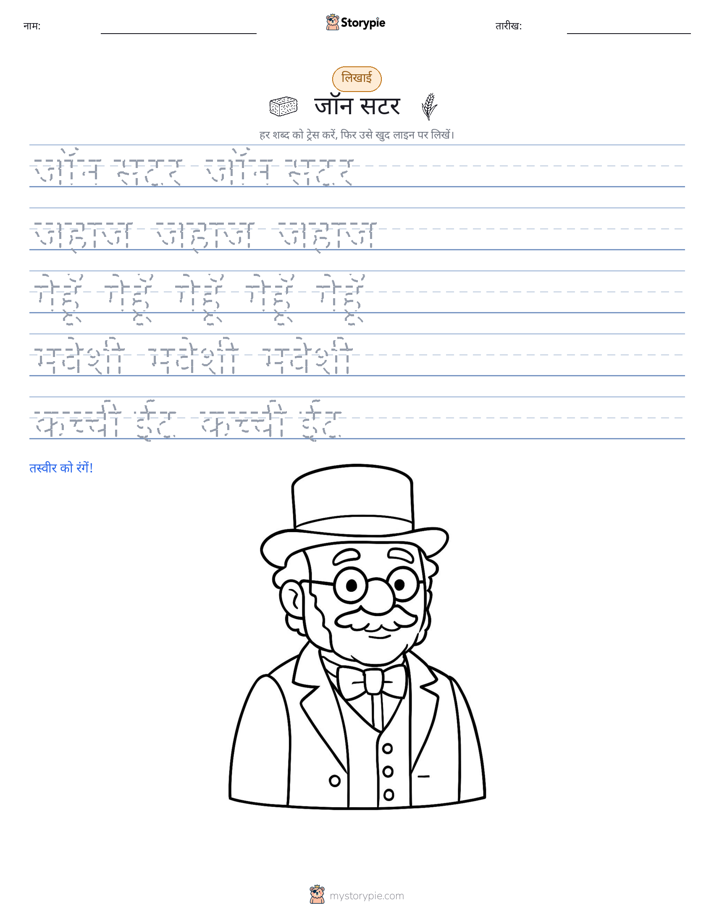 नाम:
Storypie
तारीख:
लिखाई
जॉन सटर
हर शब्द को ट्रेस करें, फिर उसे खुद लाइन पर लिखें।
जॉन सटर जॉन सटर
जहाज जहाज जहाज
गेहूँ गेहूँ गेहूँ गेहूँ गेहूँ
मवेशी मवेशी मवेशी
कच्ची ईंट कच्ची ईंट
तस्वीर को रंगें!
mystorypie.com